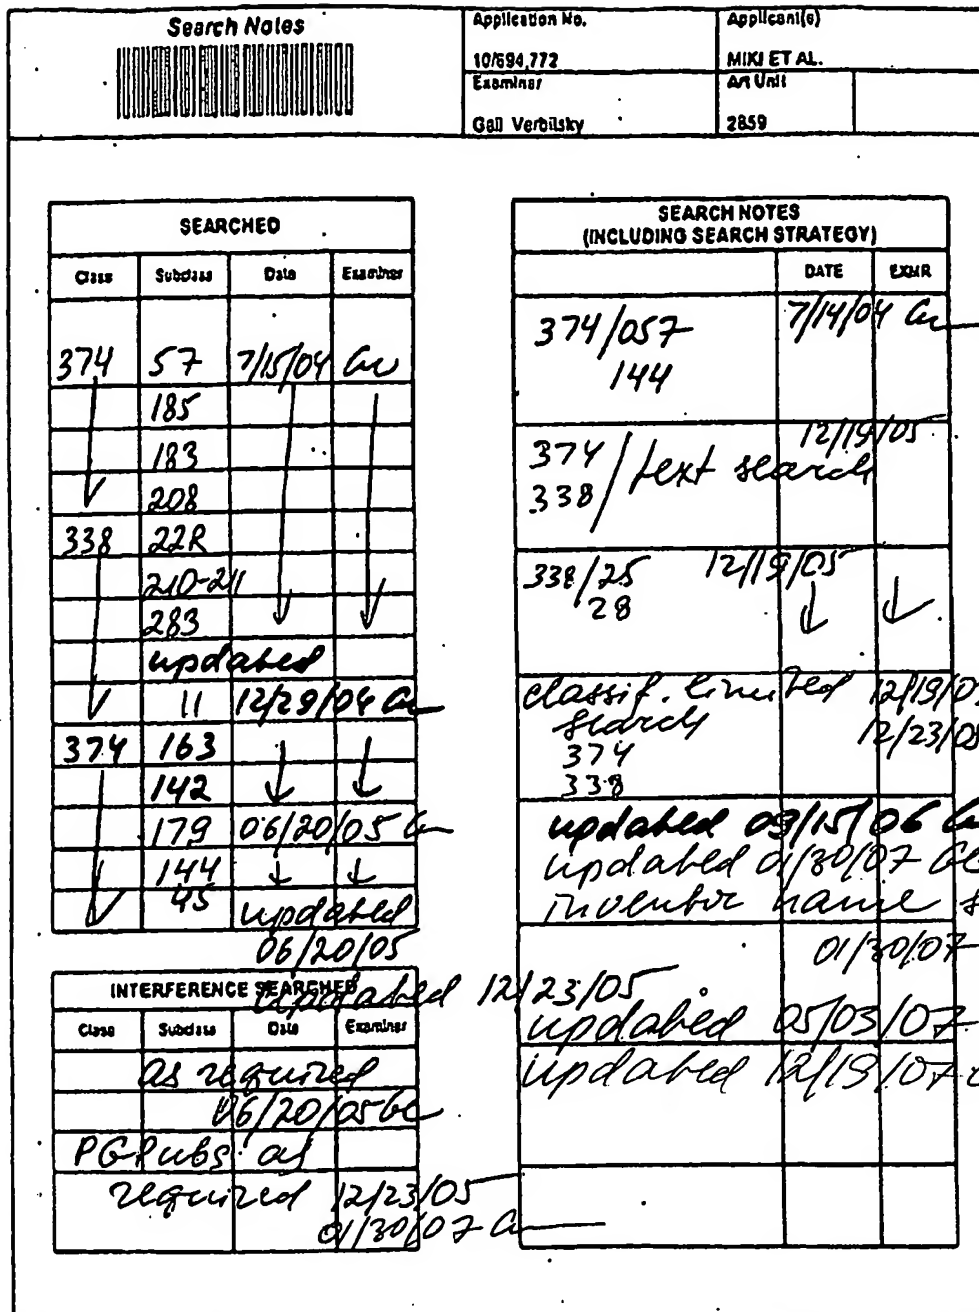 Search Notes
Application No.
Applicant(s)
10/694,772
MIKI ET AL.
Examiner
Art Unit
Gail Verbitsky
2859
SEARCHED
Class Subclass Date Examiner
374 57 7/15/04 Gv
185
183
208
338 22R
210-211
283
updated
11 12/29/04 Gv
374 163
142
179 06/20/05 Gv
144
45 updated
06/20/05
updated 12/23/05
INTERFERENCE SEARCHED
Class Subclass Date Examiner
as required
06/20/05 Gv
PGPubs as
required 12/23/05
01/30/07 Gv
SEARCH NOTES
(INCLUDING SEARCH STRATEGY)
DATE EXMR
374/057 7/14/04 Gv
144
12/19/05
374
338 / text search
338/25 12/19/05
28
classif. limited 12/19/05
search 12/23/05
374
338
updated 09/15/06 Gv
updated 01/30/07
inventor name
01/30/07
updated 05/03/07
updated 12/19/07